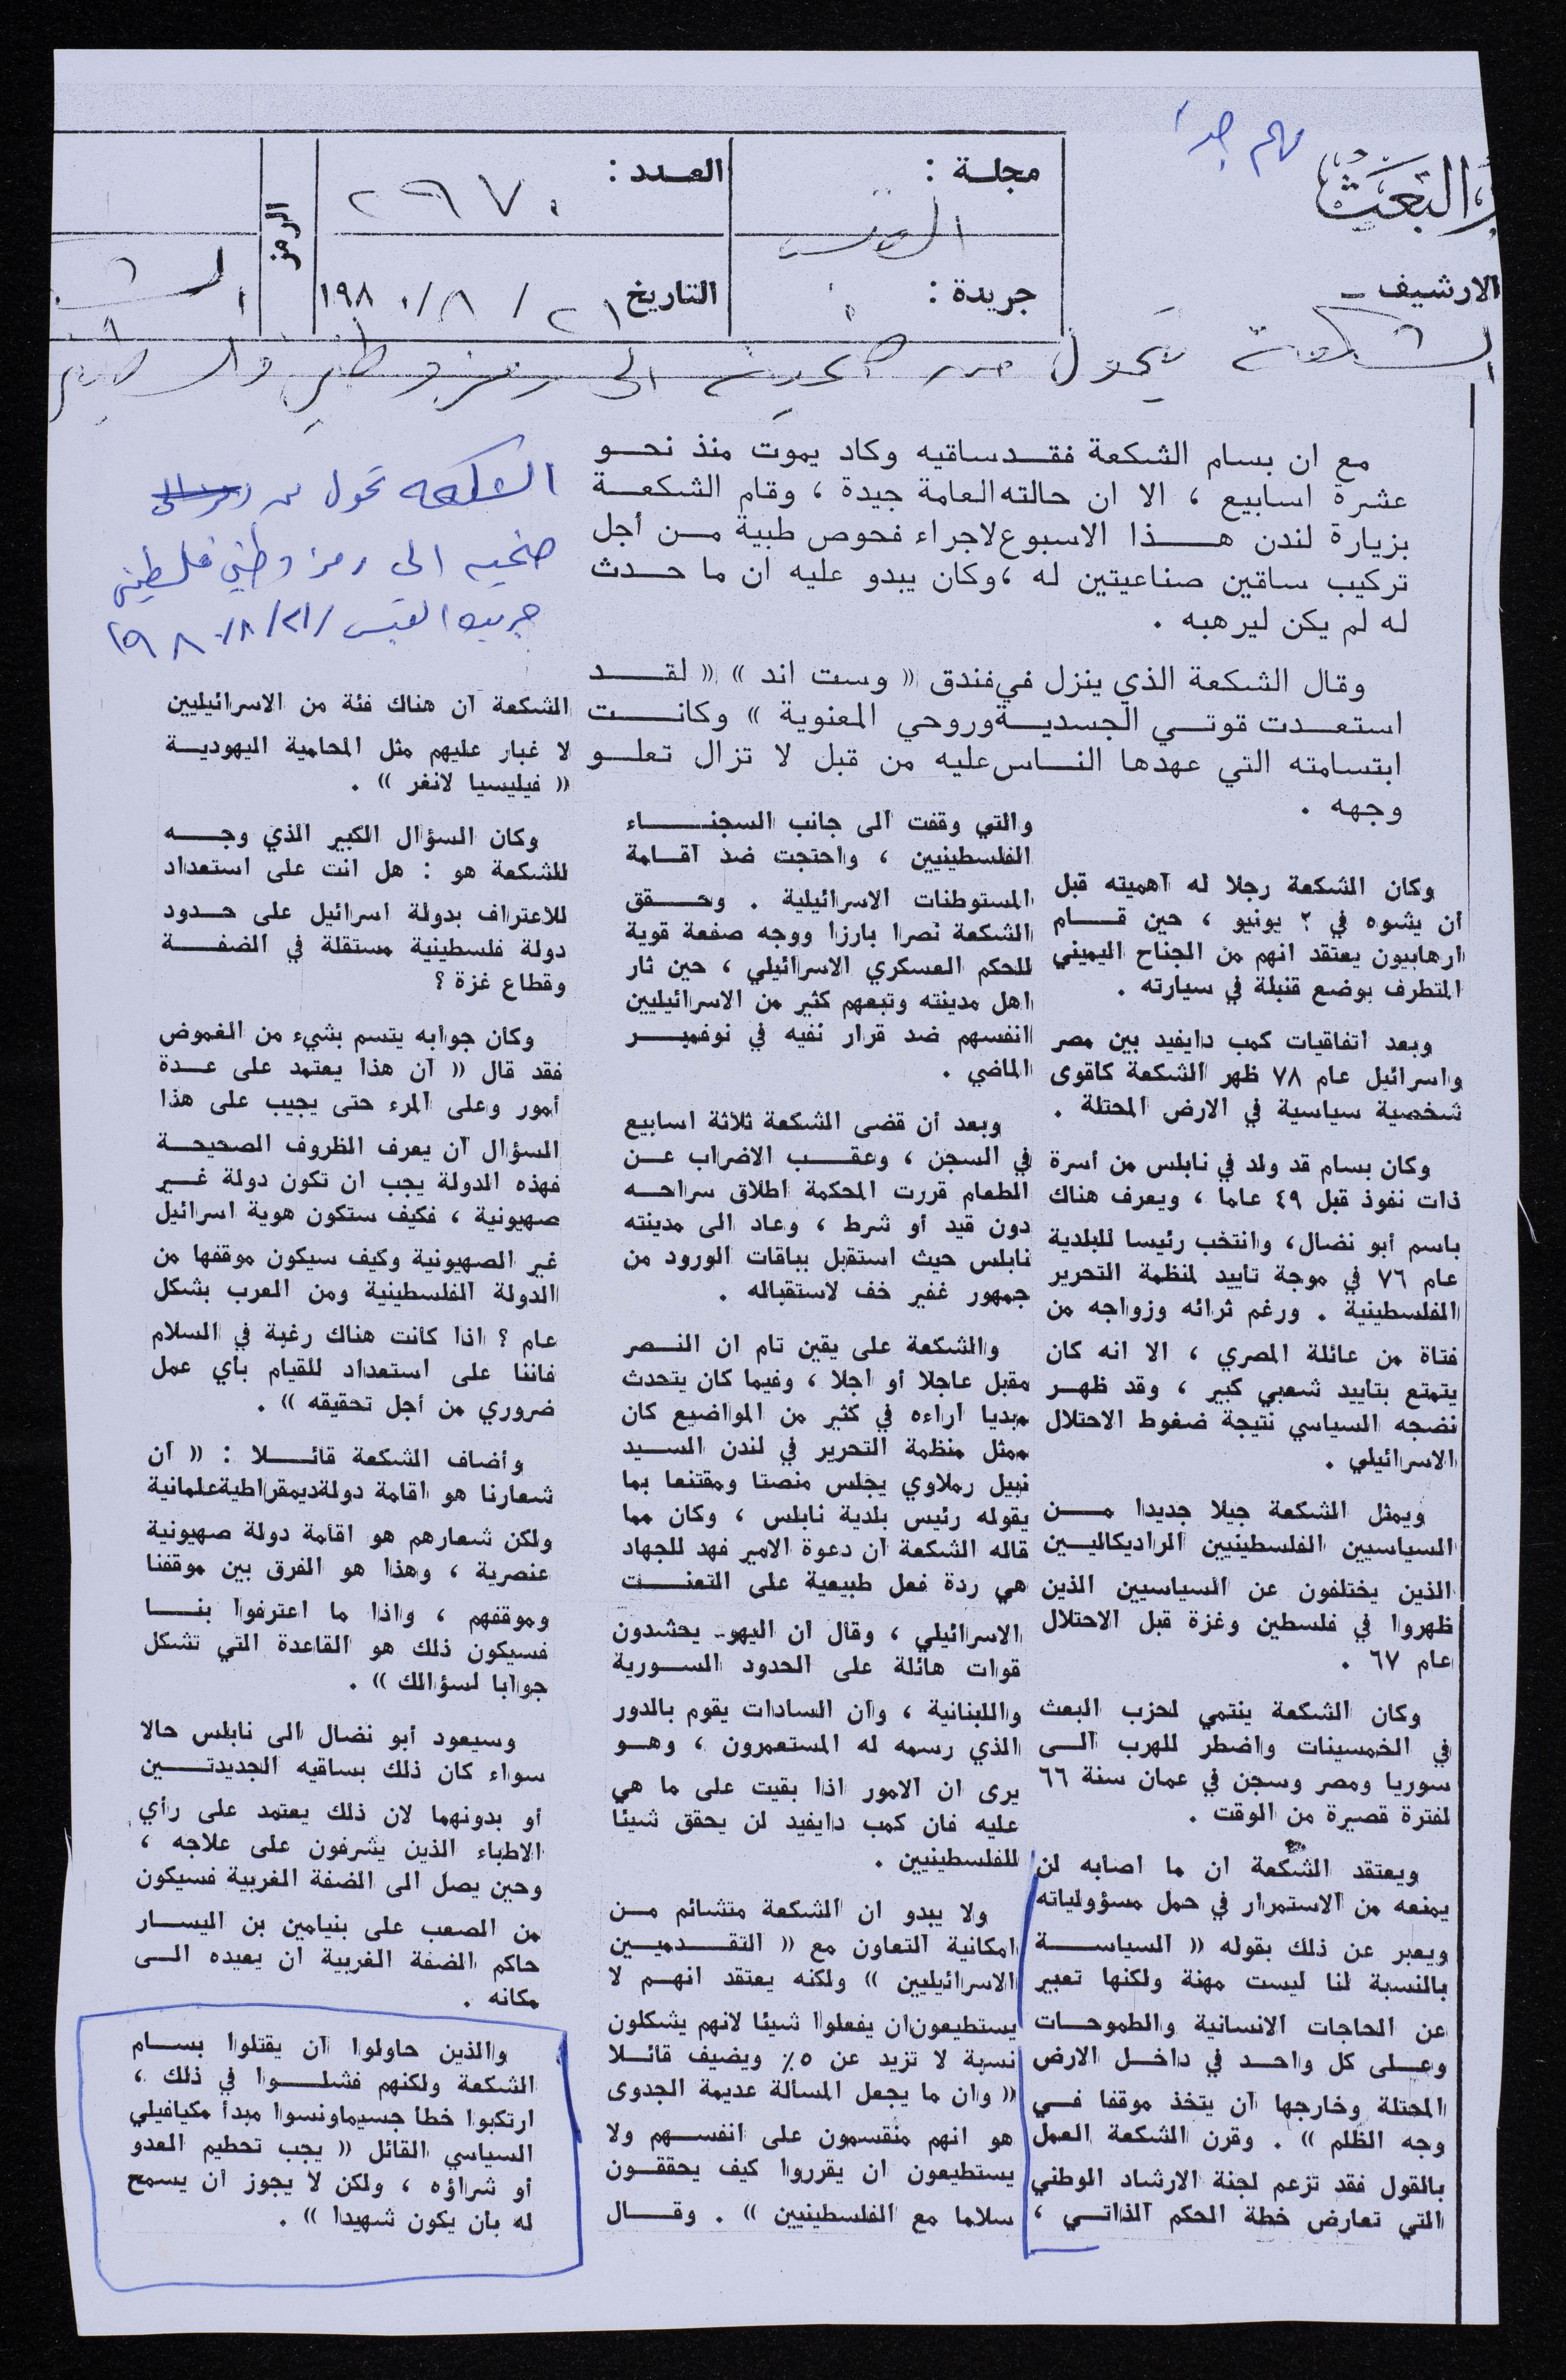 مهم جدا
والبعث
الارشيف -
مجلة :
القبس
جريدة :
العدد :
٢٩٧٠
التاريخ ٢١ / ٨ / ١٩٨٠
الرمز
الشكعة يتحول من ضحية الى رمز وطني
الشكعه تحول من
ضحيه الى رمز وطني فلسطيني
جريدة القبس / ٢١/ ٨/ ١٩٨٠
مع ان بسام الشكعة فقد ساقيه وكاد يموت منذ نحو
عشرة اسابيع ، الا ان حالته العامة جيدة ، وقام الشكعة
بزيارة لندن هذا الاسبوع لاجراء فحوص طبية من أجل
تركيب ساقين صناعيتين له ، وكان يبدو عليه ان ما حدث
له لم يكن ليرهبه .
وقال الشكعة الذي ينزل في فندق « وست اند » « لقد
استعدت قوتي الجسدية وروحي المعنوية » وكانت
ابتسامته التي عهدها الناس عليه من قبل لا تزال تعلو
وجهه .
وكان الشكعة رجلا له أهميته قبل
أن يشوه في ٢ يونيو ، حين قام
ارهابيون يعتقد انهم من الجناح اليميني
المتطرف بوضع قنبلة في سيارته .
وبعد اتفاقيات كمب دايفيد بين مصر
واسرائيل عام ٧٨ ظهر الشكعة كاقوى
شخصية سياسية في الارض المحتلة .
وكان بسام قد ولد في نابلس من أسرة
ذات نفوذ قبل ٤٩ عاما ، ويعرف هناك
باسم أبو نضال ، وانتخب رئيسا للبلدية
عام ٧٦ في موجة تأييد لمنظمة التحرير
الفلسطينية . ورغم ثرائه وزواجه من
فتاة من عائلة المصري ، الا انه كان
يتمتع بتأييد شعبي كبير ، وقد ظهر
نضجه السياسي نتيجة ضغوط الاحتلال
الاسرائيلي .
ويمثل الشكعة جيلا جديدا من
السياسيين الفلسطينيين الراديكاليين
الذين يختلفون عن السياسيين الذين
ظهروا في فلسطين وغزة قبل الاحتلال
عام ٦٧ .
وكان الشكعة ينتمي لحزب البعث
في الخمسينات واضطر للهرب الى
سوريا ومصر وسجن في عمان سنة ٦٦
لفترة قصيرة من الوقت .
ويعتقد الشكعة ان ما اصابه لن
يمنعه من الاستمرار في حمل مسؤولياته
ويعبر عن ذلك بقوله « السياسة
بالنسبة لنا ليست مهنة ولكنها تعبير
عن الحاجات الانسانية والطموحات
وعلى كل واحد في داخل الارض
المحتلة وخارجها أن يتخذ موقفا في
وجه الظلم » . وقرن الشكعة العمل
بالقول فقد تزعم لجنة الارشاد الوطني
التي تعارض خطة الحكم الذاتي ،
والتي وقفت الى جانب السجناء
الفلسطينيين ، واحتجت ضد اقامة
المستوطنات الاسرائيلية . وحقق
الشكعة نصرا بارزا ووجه صفعة قوية
للحكم العسكري الاسرائيلي ، حين ثار
اهل مدينته وتبعهم كثير من الاسرائيليين
انفسهم ضد قرار نفيه في نوفمبر
الماضي .
وبعد أن قضى الشكعة ثلاثة اسابيع
في السجن ، وعقب الاضراب عن
الطعام قررت المحكمة اطلاق سراحه
دون قيد أو شرط ، وعاد الى مدينته
نابلس حيث استقبل بباقات الورود من
جمهور غفير خف لاستقباله .
والشكعة على يقين تام ان النصر
مقبل عاجلا أو اجلا ، وفيما كان يتحدث
مبديا اراءه في كثير من المواضيع كان
ممثل منظمة التحرير في لندن السيد
نبيل رملاوي يجلس منصتا ومقتنعا بما
يقوله رئيس بلدية نابلس ، وكان مما
قاله الشكعة أن دعوة الامير فهد للجهاد
هي ردة فعل طبيعية على التعنت
الاسرائيلي ، وقال ان اليهود يحشدون
قوات هائلة على الحدود السورية
واللبنانية ، وان السادات يقوم بالدور
الذي رسمه له المستعمرون ، وهو
يرى ان الامور اذا بقيت على ما هي
عليه فان كمب دايفيد لن يحقق شيئا
للفلسطينيين .
ولا يبدو ان الشكعة متشائم من
امكانية التعاون مع « التقدميين
الاسرائيليين » ولكنه يعتقد انهم لا
يستطيعون ان يفعلوا شيئا لانهم يشكلون
نسبة لا تزيد عن ٥٪ ويضيف قائلا
« وان ما يجعل المسألة عديمة الجدوى
هو انهم منقسمون على انفسهم ولا
يستطيعون ان يقرروا كيف يحققون
سلاما مع الفلسطينيين » . وقال
الشكعة أن هناك فئة من الاسرائيليين
لا غبار عليهم مثل المحامية اليهودية
« فيليسيا لانغر » .
وكان السؤال الكبير الذي وجه
للشكعة هو : هل انت على استعداد
للاعتراف بدولة اسرائيل على حدود
دولة فلسطينية مستقلة في الضفة
وقطاع غزة ؟
وكان جوابه يتسم بشيء من الغموض
فقد قال « أن هذا يعتمد على عدة
أمور وعلى المرء حتى يجيب على هذا
السؤال أن يعرف الظروف الصحيحة
فهذه الدولة يجب ان تكون دولة غير
صهيونية ، فكيف ستكون هوية اسرائيل
غير الصهيونية وكيف سيكون موقفها من
الدولة الفلسطينية ومن العرب بشكل
عام ؟ اذا كانت هناك رغبة في السلام
فاننا على استعداد للقيام بأي عمل
ضروري من أجل تحقيقه » .
وأضاف الشكعة قائلا : « أن
شعارنا هو اقامة دولة ديمقراطية علمانية
ولكن شعارهم هو اقامة دولة صهيونية
عنصرية ، وهذا هو الفرق بين موقفنا
وموقفهم ، واذا ما اعترفوا بنا
فسيكون ذلك هو القاعدة التي تشكل
جوابا لسؤالك » .
وسيعود أبو نضال الى نابلس حالا
سواء كان ذلك بساقيه الجديدتين
أو بدونهما لان ذلك يعتمد على رأي
الاطباء الذين يشرفون على علاجه ،
وحين يصل الى الضفة الغربية فسيكون
من الصعب على بنيامين بن اليسار
حاكم الضفة الغربية ان يعيده الى
مكانه .
والذين حاولوا أن يقتلوا بسام
الشكعة ولكنهم فشلوا في ذلك ،
ارتكبوا خطأ جسيما ونسوا مبدأ مكيافيلي
السياسي القائل « يجب تحطيم العدو
أو شراؤه ، ولكن لا يجوز أن يسمح
له بأن يكون شهيدا » .